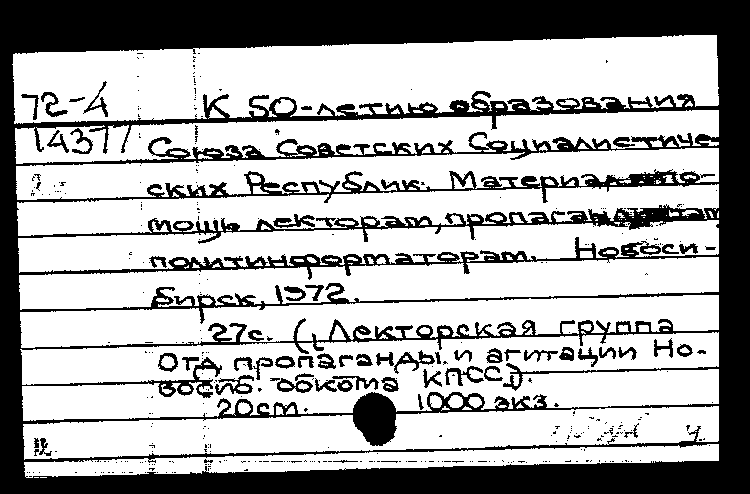 72-4 К 50-летию образования
14377 Союза Советских Социалистиче-
ских Республик. Материал по-
мощь лекторам, пропагандистам
политинформаторам. Новоси-
бирск, 1972.
27с. (Лекторская группа
Отд. пропаганды и агитации Но-
восиб. обкома КПСС).
20см. 1000 экз.
4